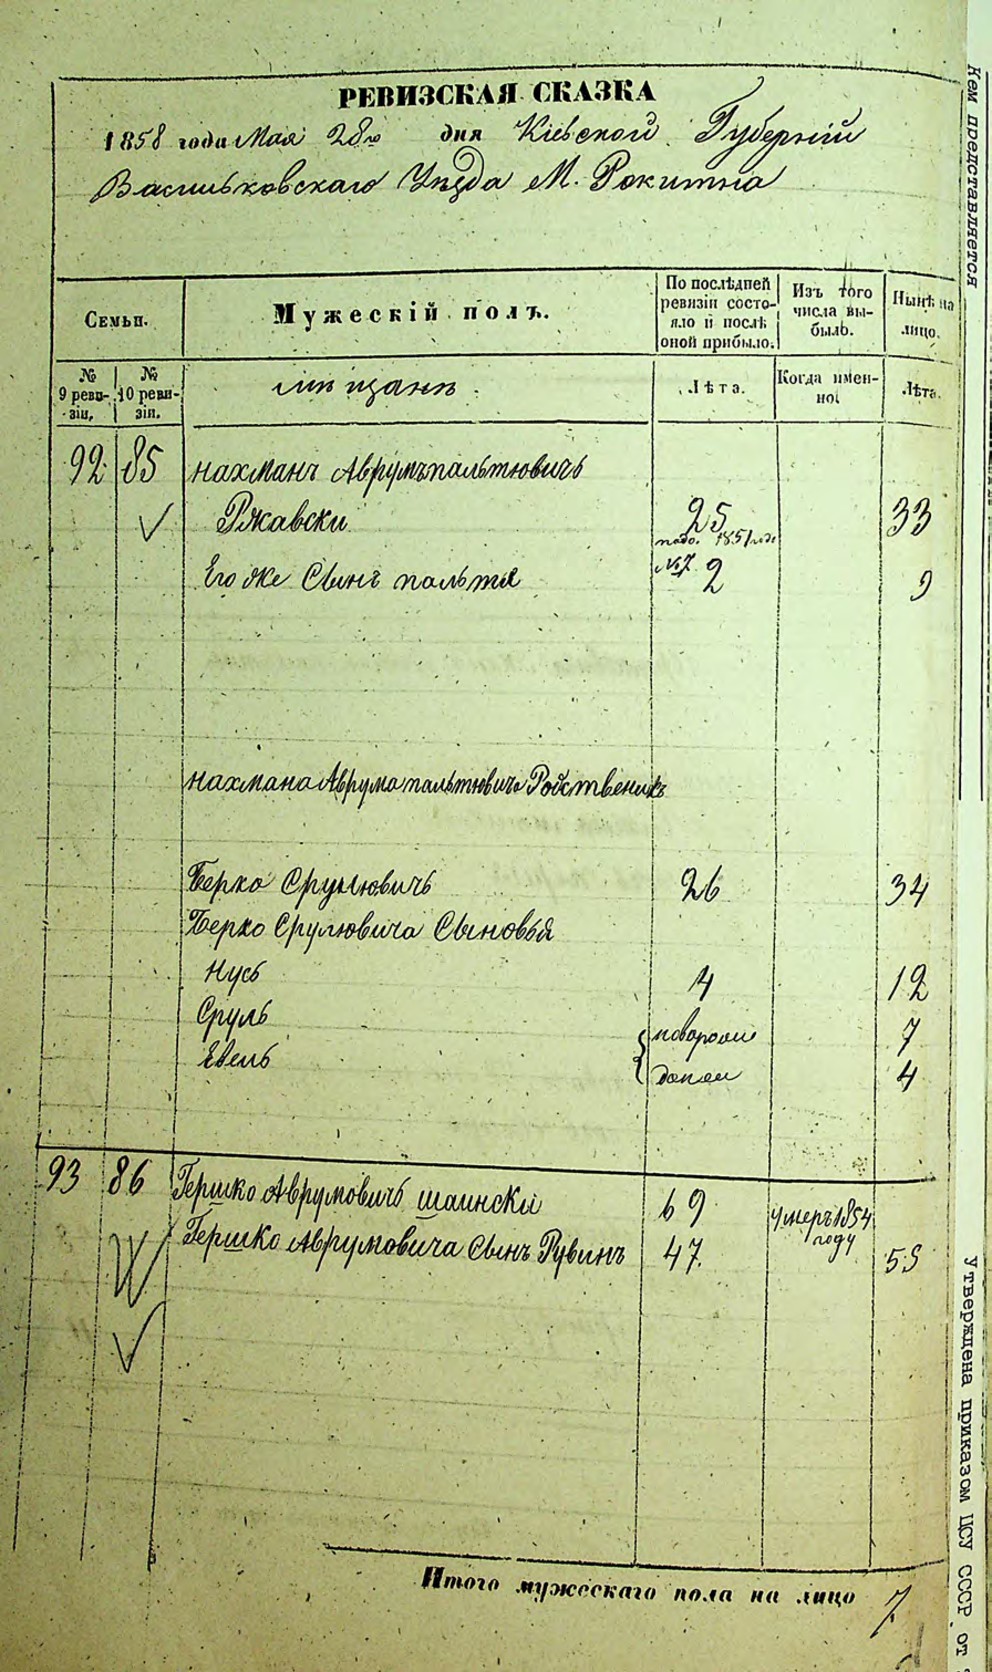 РЕВИЗСКАЯ СКАЗКА
1858 года Мая 28го дня Кіевской Губерніи
Васильковскаго Уѣзда М. Рокитна
Семьи.
Мужескій полъ.
По послѣдней ревизіи состояло и послѣ оной прибыло.
Изъ того числа выбыло.
Нынѣ на лицо.
№ 9 ревизіи.
№ 10 ревизіи.
мѣщанѣ.
Лѣта.
Когда именно.
Лѣта.
92 85 Нахманъ Аврумъ пальтювичъ
Ржавски 25 33
1851 годѣ
Его же Сынъ пальтя №7 2 9
Нахмана Аврума пальтювича Родственикъ
Берко Срулювичъ 26 34
Берко Срулювича Сыновья
Нусь 4 12
Сруль 7
Евель 4
93 86 Гершко Аврумовичъ шаински 69 Умеръ 1854 году
Гершко Аврумовича Сынъ Рувинъ 47. 55
Итого мужескаго пола на лицо 7
Кем представляется
Утверждена приказом ЦСУ СССР от